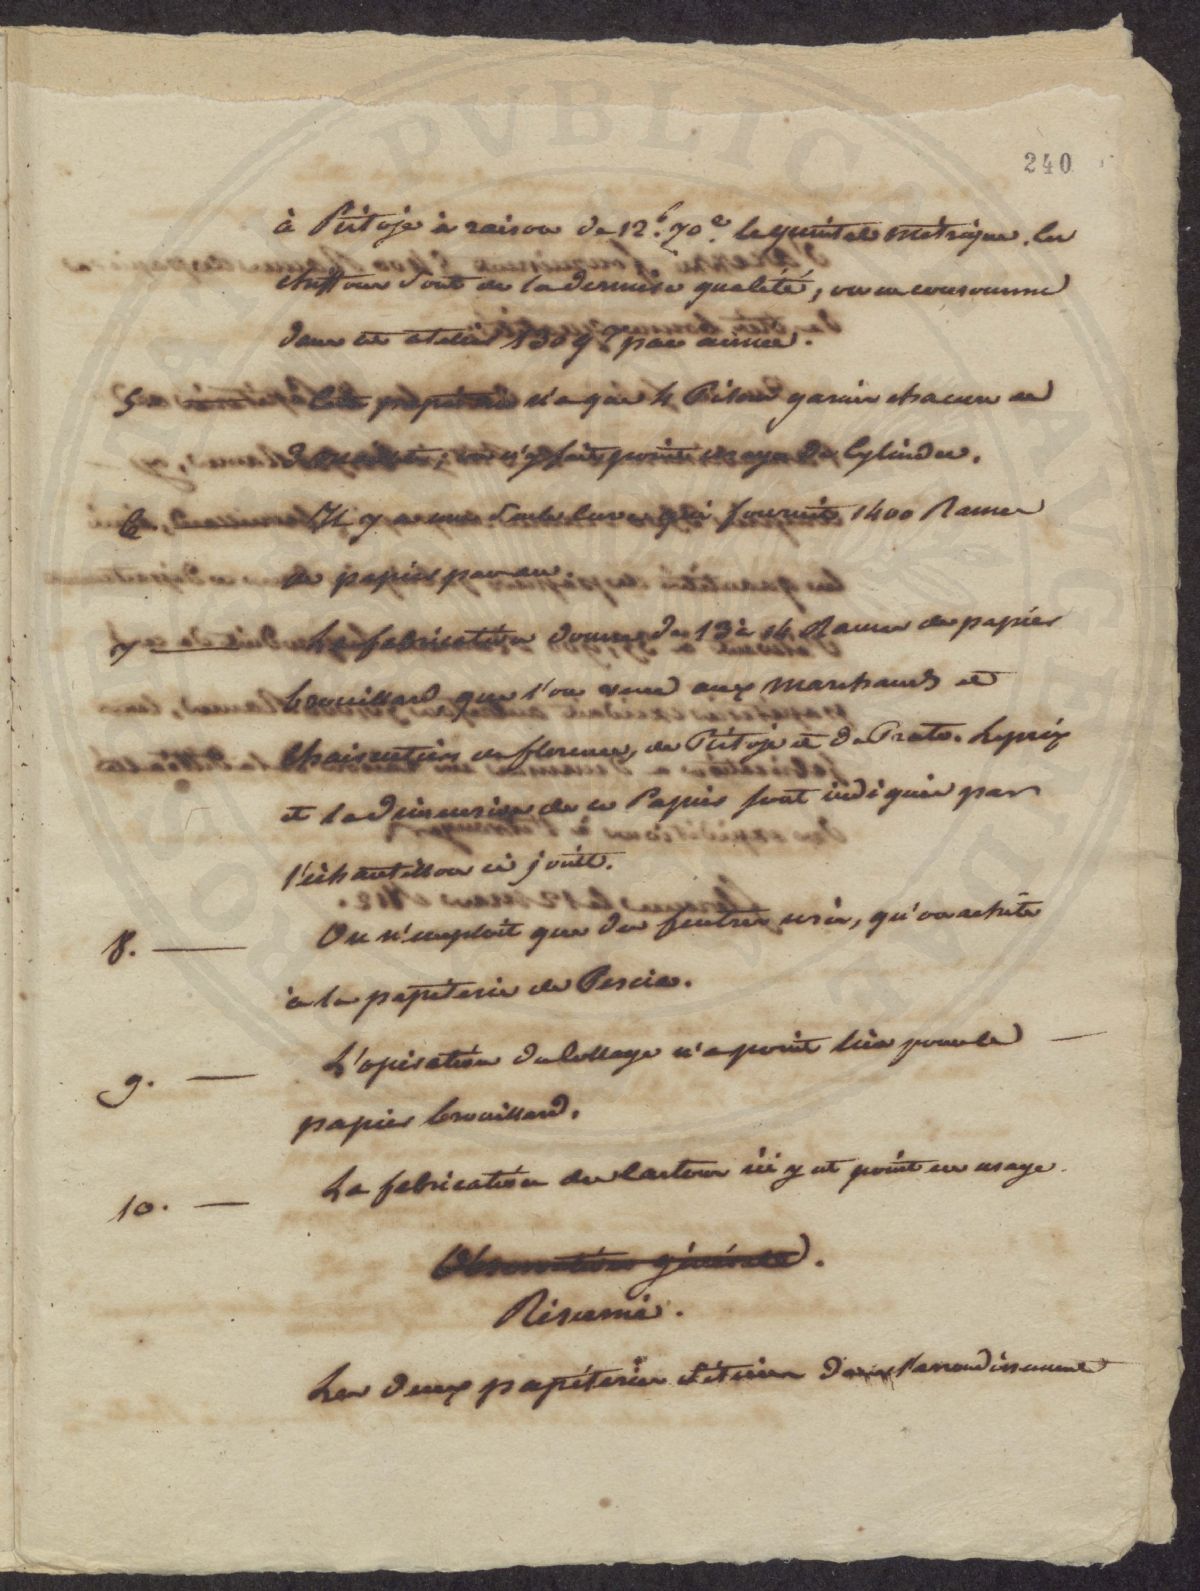 240
à Pistoje à raison de 12.f 70.c le quintal métrique. les
chiffons sont de la dernière qualité, on en consomme
dans cet atelier 130 q.x par année.
5. — Cette papéterie n'a que 4 Piles garnies chacune de
on n'y fait point usage de Cylindre.
6. Il y a une seule cuve qui fournit 1400 Rames
de papier par an.
7 — La fabrication donne de 13 à 14 Rames de papier
brouillard que l'on vend aux marchands et
Chaircutiers de florence, de Pistoje et de Prato. Le prix
et la dimension de ce Papier sont indiqués par
l'échantillon ci joint.
8. — On n'emploit que des feutres usés, qu'on achète
à la papéterie de Pescia.
9. — L'opération du Collage n'a point lieu pour le —
papier brouillard.
10. — La fabrication du Carton n'y est point en usage.
Observations générales.
Résumé.
Les deux papéteries situées dans l'arrondissement